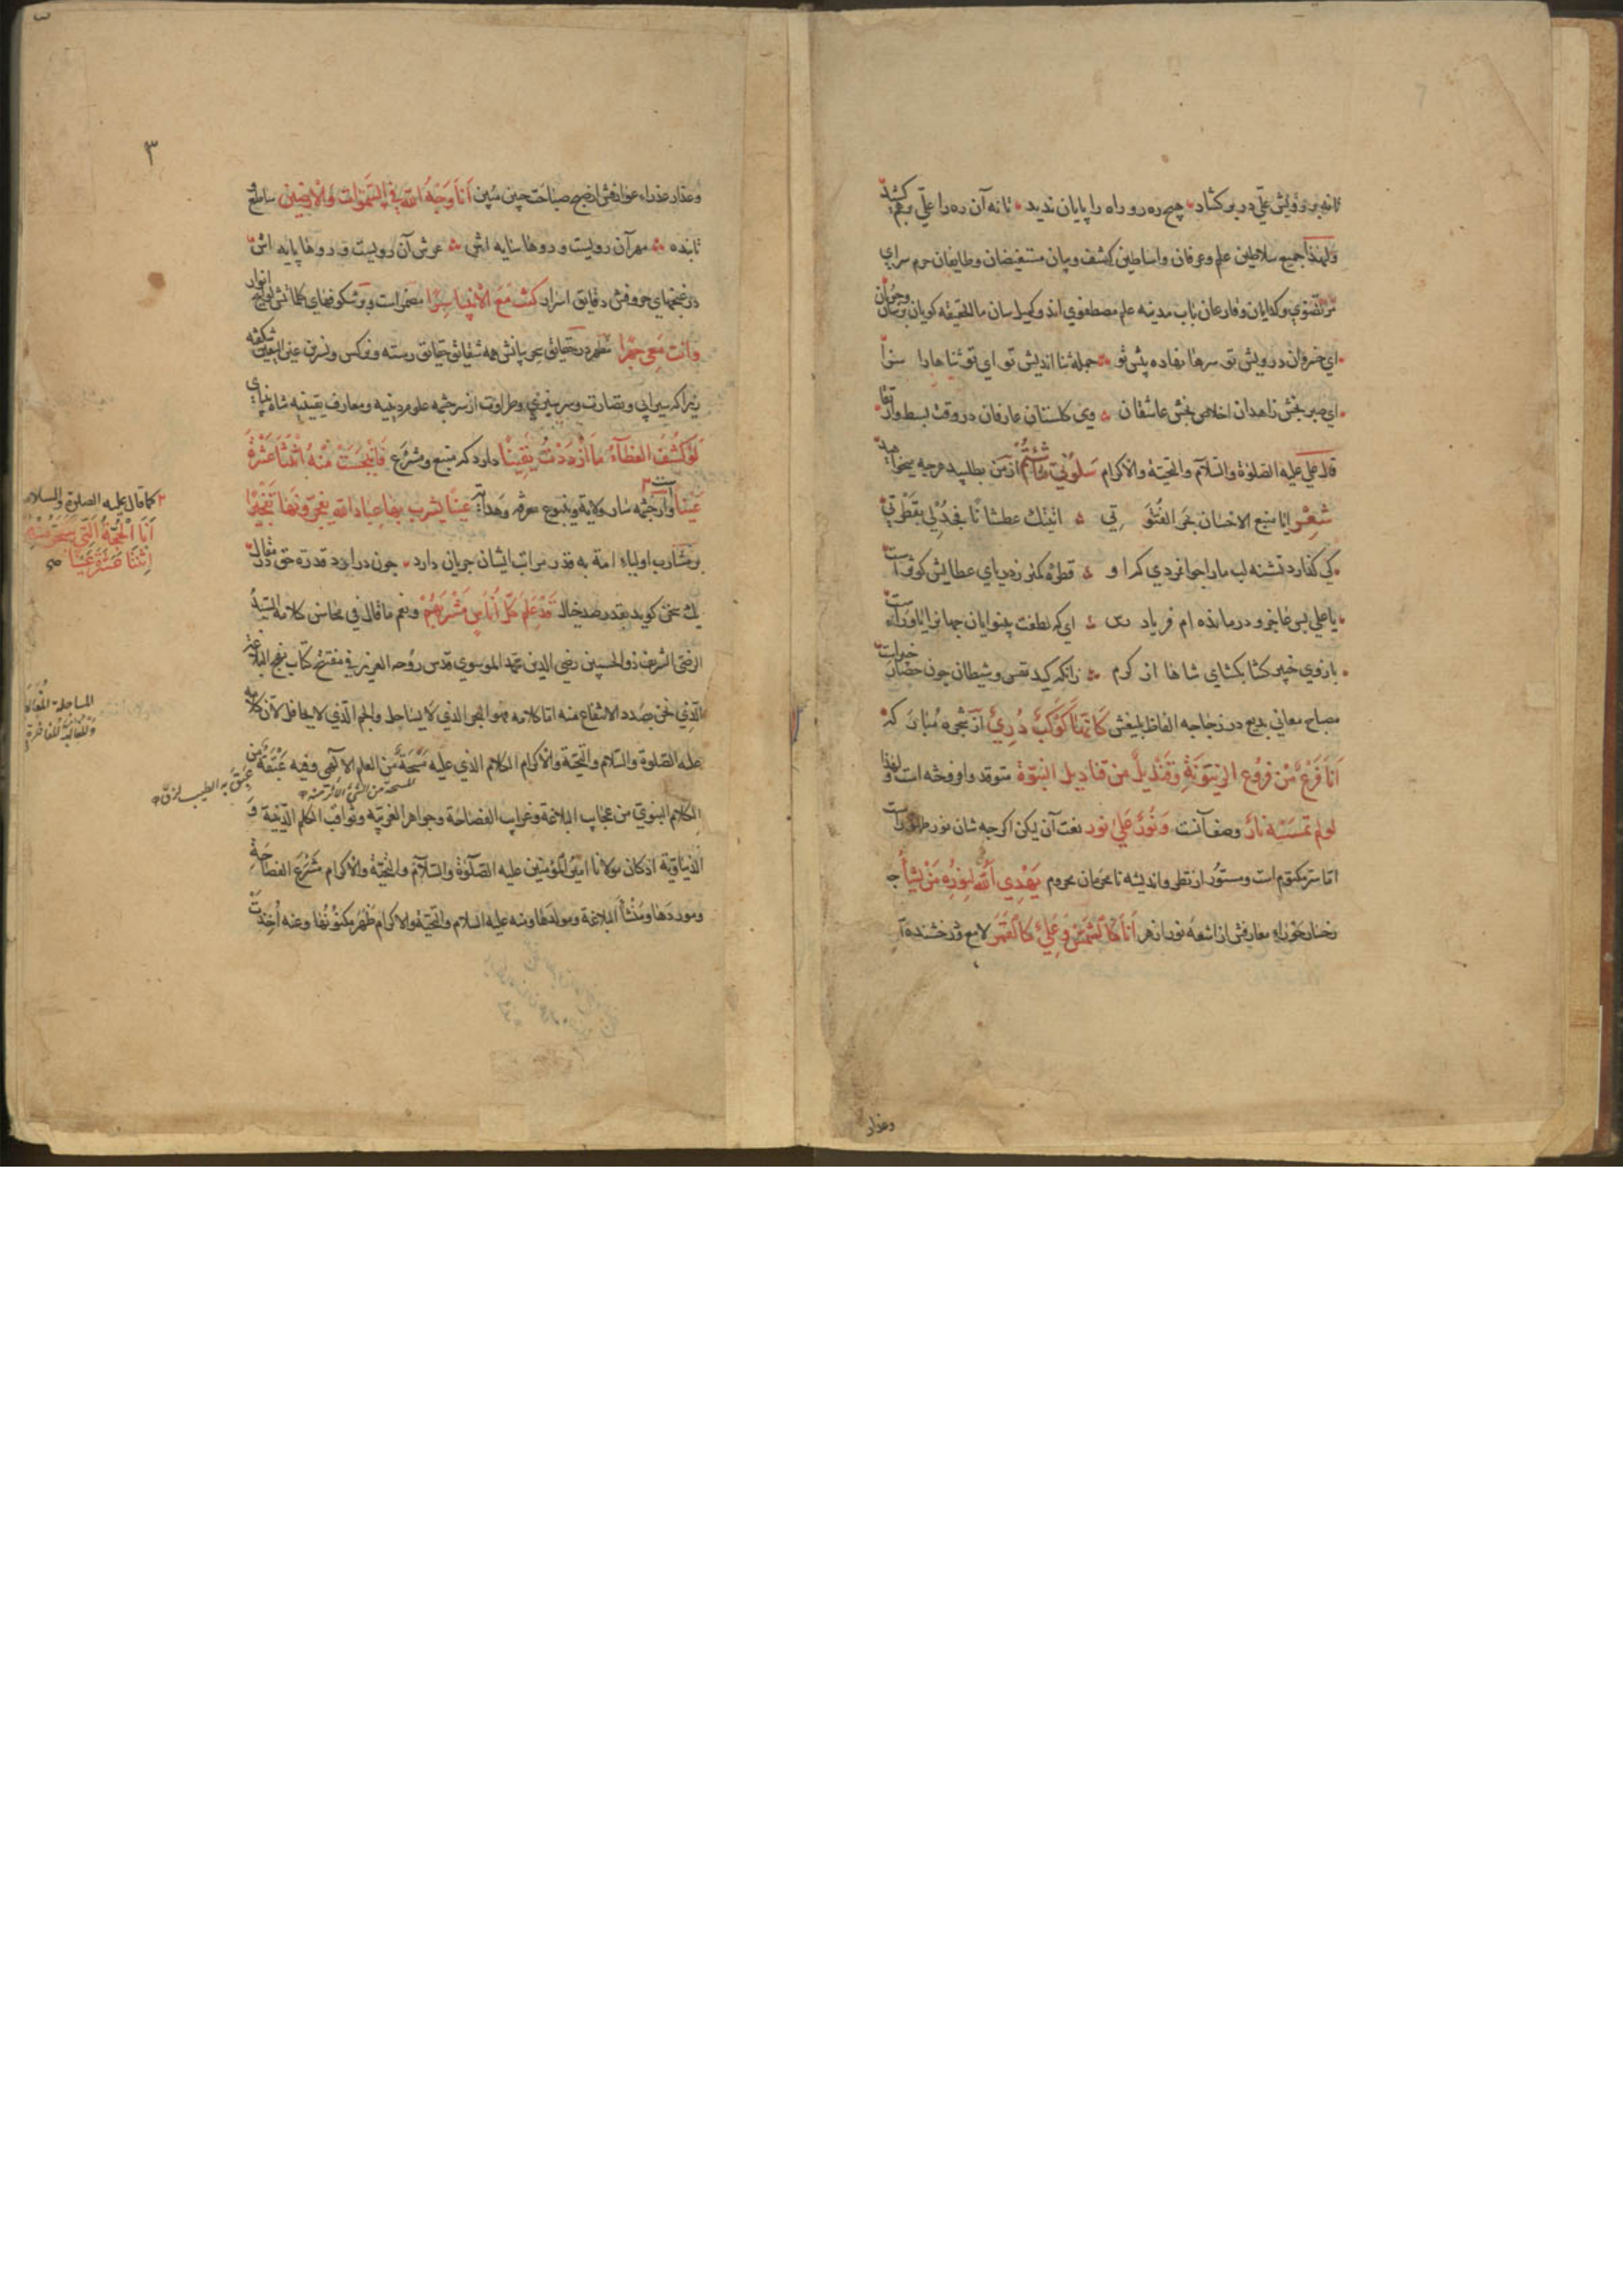 تا نه بر رویش علی در بر کشاد هیچ ره رو راه را پایان ندید تا نه آن ره را علی رهبر کشید
ولهذا جمیع سلاطین علم وعرفان واساطین کشف وبیان مستفیضان وطایفان حرم سرای
مرتضوی وکدایان وقارعان باب مدینه علم مصطفوی اند وکمیل سان ما الحقیقه کویان
ای خسروان درویش تو سرها نهاده پیش تو جمله ثنا اندیش تو ای تو ثناها را سزا
ای صبر بخش زاهدان اخلاص بخش عاشقان وی کلستان عارفان در وقت بسط و التقا
قال علی علیه الصلوة والسلام والتحیة والاکرام سلونی عما شئتم از من بطلبید هرجه میخواهید
شعر ایا منبع الاحسان بحر الفتوتی اتیتك عطشانا فجد لی بقطرتی
کی کذارد تشنه لب ما را جوانمردی کمر او قطره کمتر ز دریای عطایش کوثر است
یا علی بس عاجز و درمانده ام فریاد رس ای که لطفت بینوایان جهانرا یاور است
بازوی خیبر کشا بکشای شاها از کرم زانکه کید نفس وشیطان چون حصار خیبر است
مصباح معانی بدیع در زجاجه الفاظ بلیغش کانها کوکب دری از شجره مبارکه
انا فرع من فروع الزیتونة وقندیل من قنادیل النبوة متوقد وافروخته است ولهذا
لو لم تمسسه نار وصف آنست ونور علی نور نعت آن لیکن اکرجه شان نور ظهور است
اما سر مکتوم است ومستور از نظر واندیشه نا محرمان محروم یهدی الله لنوره من یشاء
رخسار حوراء معارفش از اشعه نور ازهر انا کالشمس وعلی کالقمر لامع ودرخشنده
وعذار
٣
وعذار عذراء عوارفش از صبح صباحت جبین مبین انا وجه الله فی السموات والارضین ساطع و
تابنده مهر آن رویست و دوها سایه اش عرش آن رویست و دوها پایه اش
در غنجهای حروفش دقایق اسرار کنت مع الانبیا سرا مضمر است وبر شکوفهای کلماتش لوایح انوار
وانت معی جهرا مظهر در حدایق بیانش همه شقایق حقایق رسته ونرکس ونسرین عین الیقین شکفته
زیرا که سیرابی ونضارت وسرسبزی وطراوت از سرچشمه علوم دینیه ومعارف یقینیه شاه
لو کشف الغطاء ما ازددت یقینا دارد که منبع ومشرع فانبجست منه اثنتا عشرة
عینا است واز چشمه سار ولایة وینبوع معرفه وهدایه عینا یشرب بها عباد الله یفجرونها تفجیرا
بر مشارب اولیاء امة به قدر مراتب ایشان جریان دارد چون در آرد قدرة حق در مقال
یك سخن کوید بقدر صد خیال قد علم کل اناس مشربهم ونعم ما قال فی محاسن کلامه السید
الرضی الشریف ذو الحسبین رضی الدین محمد الموسوی قدس روحه العزیز فی مفتتح کتاب نهج البلاغه
الذی نحن بصدد الانتفاع منه اما کلامه فهو البحر الذی لا یساجل والجم الذی لا یحافل لان کلامه
علیه الصلوة والسلام والتحیة والاکرام الکلام الذی علیه مسحة من العلم الالهی وفیه عبقة من
الکلام النبوی من عجایب البلاغة وغرایب الفصاحة وجواهر العربیه وثواقب الکلم الدینیة و
الدنیاویة اذ کان مولانا امیر المؤمنین علیه الصلوة والسلام والتحیة والاکرام مشرع الفصاحة
وموردها ومنشأ البلاغة ومولدها ومنه علیه السلام والتحیة والاکرام ظهر مکنونها وعنه اخذت
کما قال علیه الصلوة والسلام
انا الحجة التی
اثنتا عشرة عینا
المساجلة المغالبة
عبق به الطیب لزق